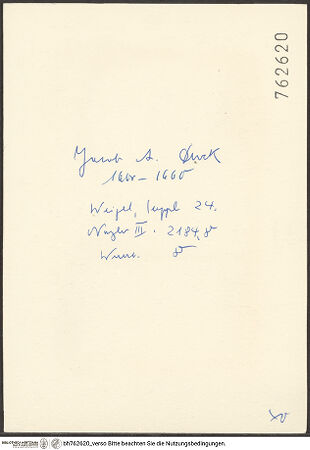 762620
Jacob A. Duck
1600-1660
Weigel, Suppl 24.
Nagler III. 2184, 8
Wurz. 8
XV
bh762620_verso Bitte beachten Sie die Nutzungsbedingungen.